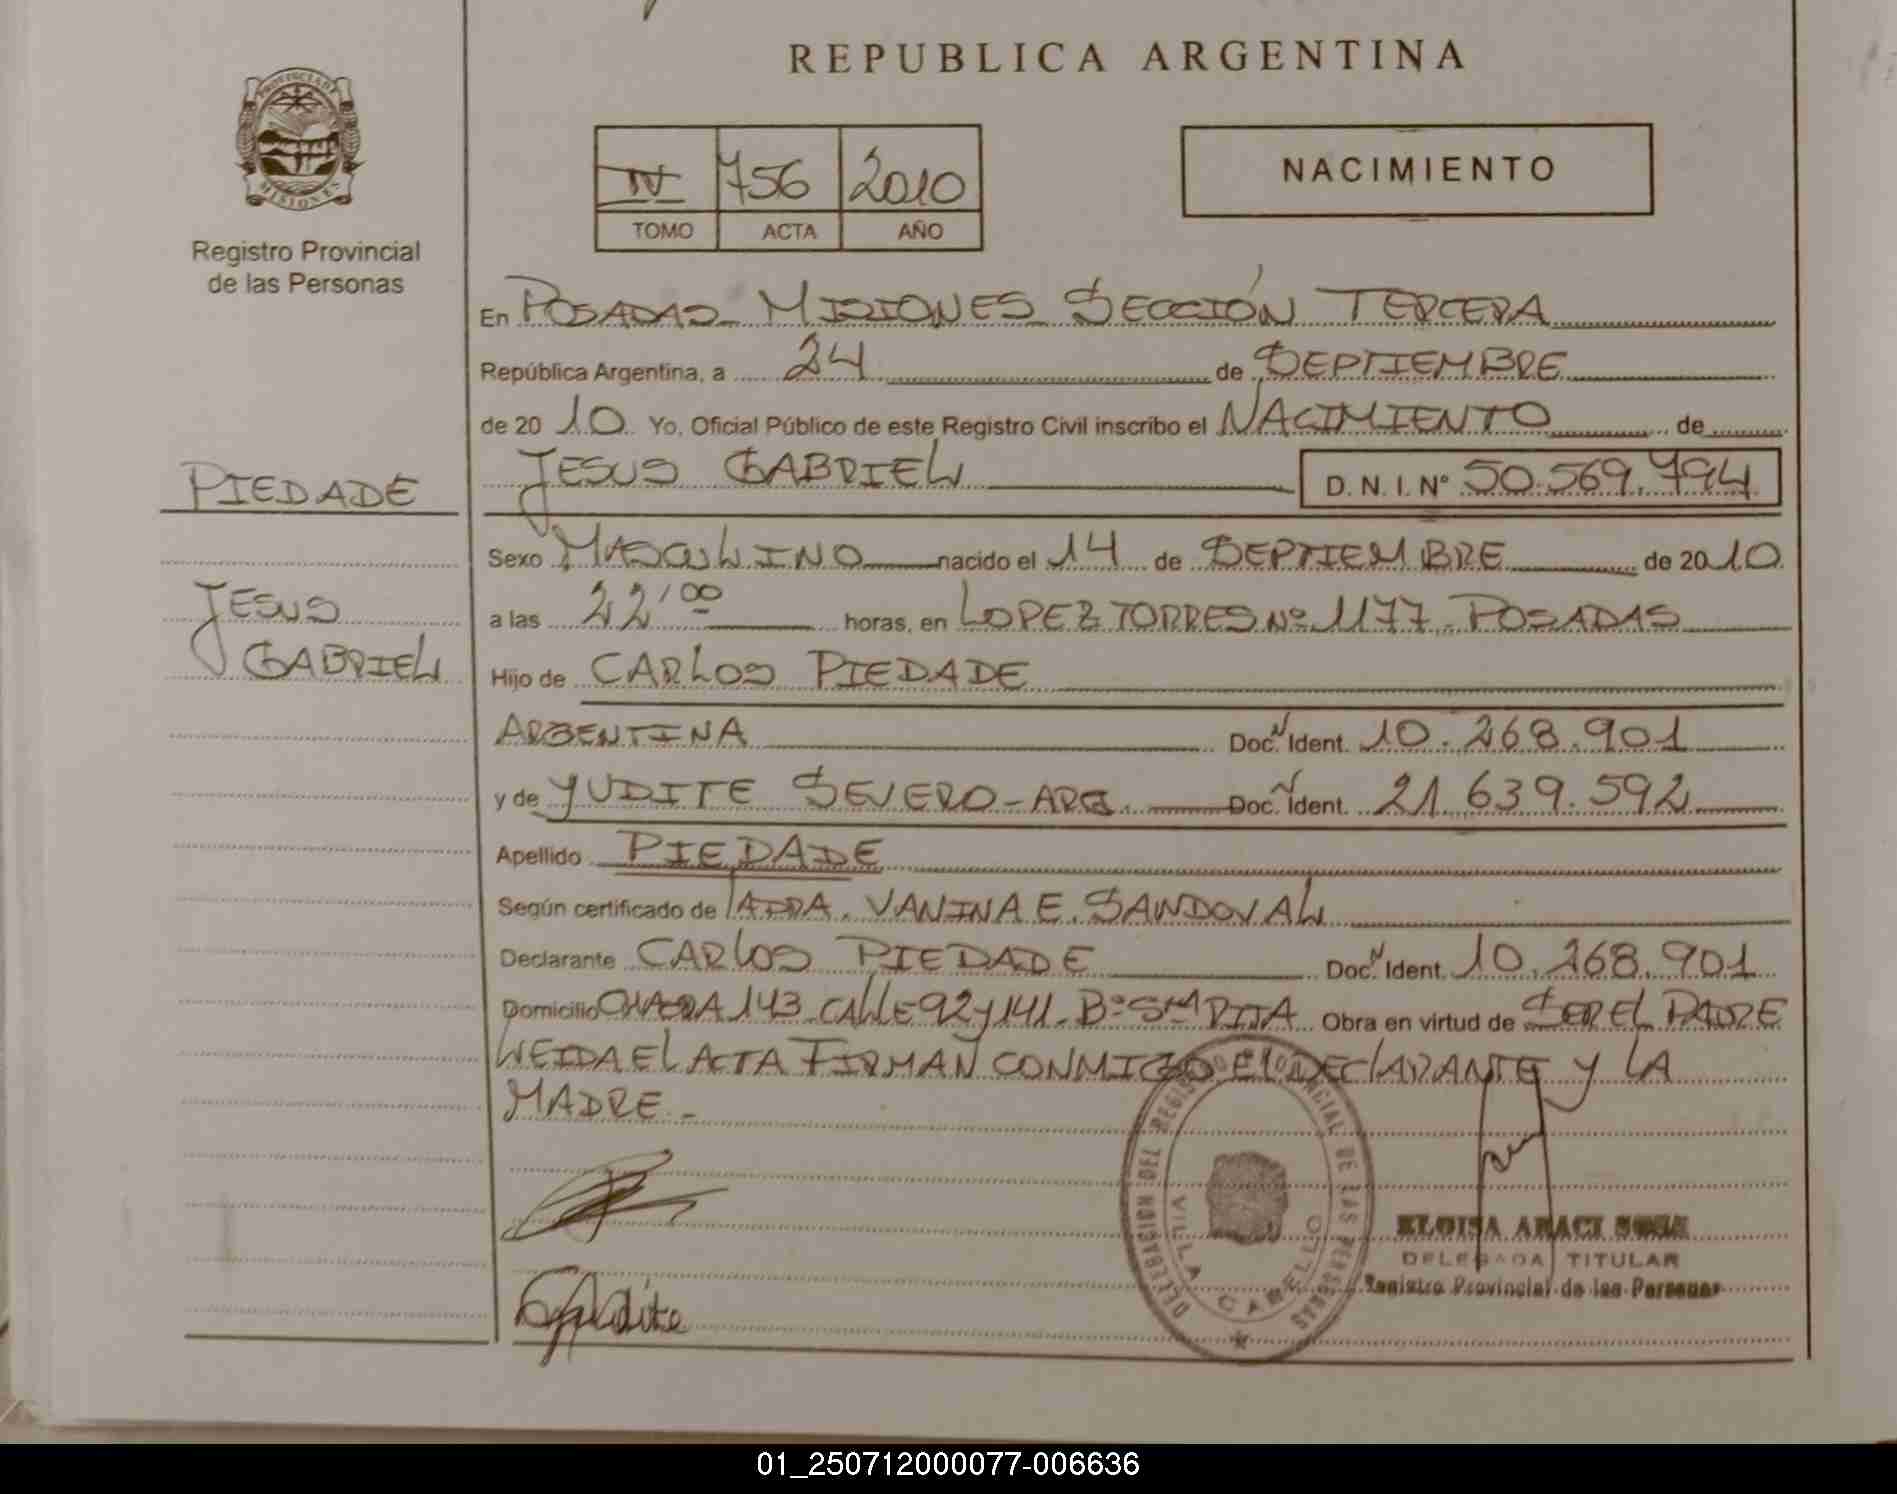 REPUBLICA ARGENTINA
PROVINCIA DE
MISIONES
Registro Provincial
de las Personas
IV 756 2010
TOMO ACTA AÑO
NACIMIENTO
En POSADAS - MISIONES - SECCIÓN TERCERA
República Argentina, a 24 de SEPTIEMBRE
de 20 10 Yo, Oficial Público de este Registro Civil inscribo el NACIMIENTO de
JESUS GABRIEL D.N.I. Nº 50.569.794
PIEDADE
JESUS
GABRIEL
Sexo MASCULINO nacido el 14 de SEPTIEMBRE de 20 10
a las 22,00 horas, en LOPEZ TORRES Nº 1177 - POSADAS
Hijo de CARLOS PIEDADE
ARGENTINA Doc. N Ident. 10.268.901
y de YUDITE SEVERO - ARG. Doc. N Ident. 21.639.592
Apellido PIEDADE
Según certificado de VANINA E. SANDOVAL
Declarante CARLOS PIEDADE Doc. N Ident. 10.268.901
Domicilio CHACRA 143 - CALLE 92 y 141 - Bº Sta RITA Obra en virtud de SER EL PADRE
LEIDA EL ACTA FIRMAN CONMIGO EL DECLARANTE Y LA
MADRE -
DELEGACION DEL REGISTRO PROVINCIAL DE LAS PERSONAS
VILLA CABELLO
ELOISA ARACI SOSA
DELEGADA TITULAR
Registro Provincial de las Personas
01_250712000077-006636